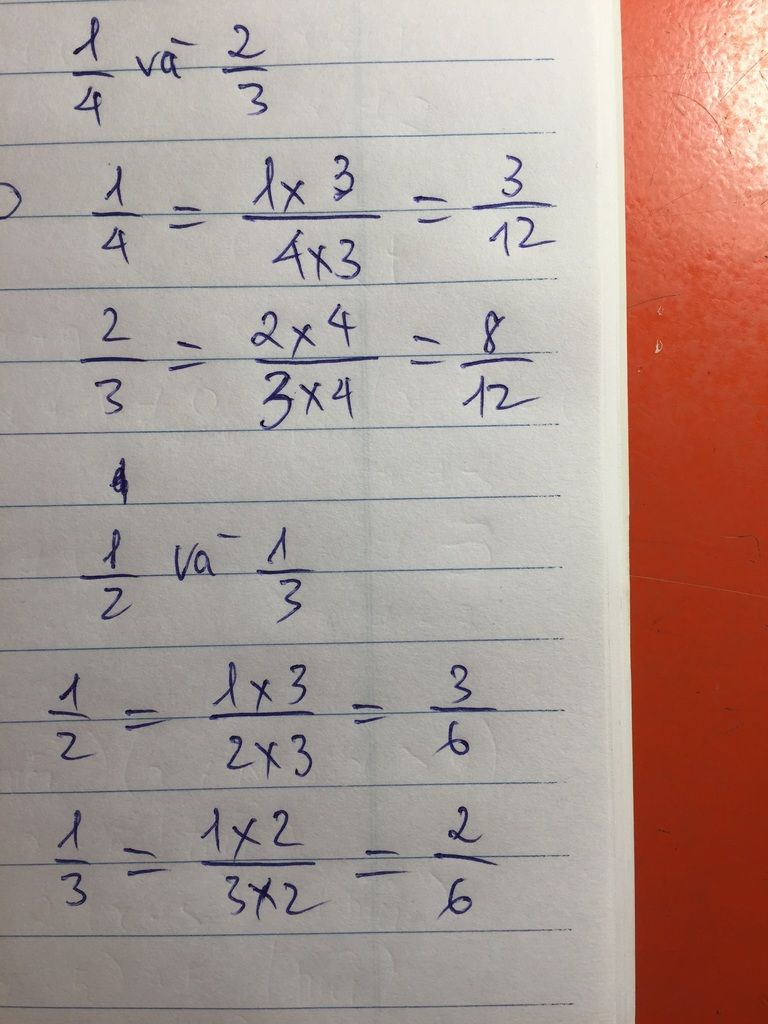 1/4 và 2/3
1/4 = 1x3/4x3 = 3/12
2/3 = 2x4/3x4 = 8/12
1/2 và 1/3
1/2 = 1x3/2x3 = 3/6
1/3 = 1x2/3x2 = 2/6